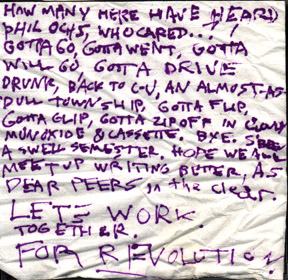 HOW MANY HERE HAVE HEARD
PHIL OCHS, WHO CARED...?
GOTTA GO, GOTTA WENT, GOTTA
WILL GO GOTTA DRIVE
DRUNK, BACK TO C-U, AN ALMOST-AS-
DULL TOWNSHIP, GOTTA FLIP,
GOTTA CLIP, GOTTA ZIP OFF IN
MONOXIDE & CASSETTE. BYE.
A SWELL SEMESTER. HOPE WE ALL
MEET UP WRITING BETTER, AS
DEAR PEERS in the clear.
LET'S WORK
TOGETHER.
FOR REVOLUTION